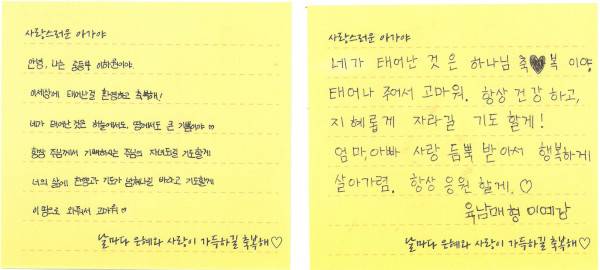 사랑스러운 아가야
안녕, 나는 중등부 이하원이야.
이세상에 태어난걸 환영하고 축복해!
네가 태어난 것은 하늘에서도, 땅에서도 큰 기쁨이야 ♡
항상 주님께서 기뻐하시는 주님의 자녀되길 기도할게
너의 삶에 찬양과 기도가 넘쳐나길 바라고 기도할게
이 땅으로 와줘서 고마워 ♡
날마다 은혜와 사랑이 가득하길 축복해♡
사랑스러운 아가야
네가 태어난 것은 하나님 축♥복 이야
태어나 주어서 고마워. 항상 건강 하고,
지혜롭게 자라길 기도 할게!
엄마,아빠 사랑 듬뿍 받아서 행복하게
살아가렴. 항상 응원 할게. ♡
육남매형
날마다 은혜와 사랑이 가득하길 축복해♡